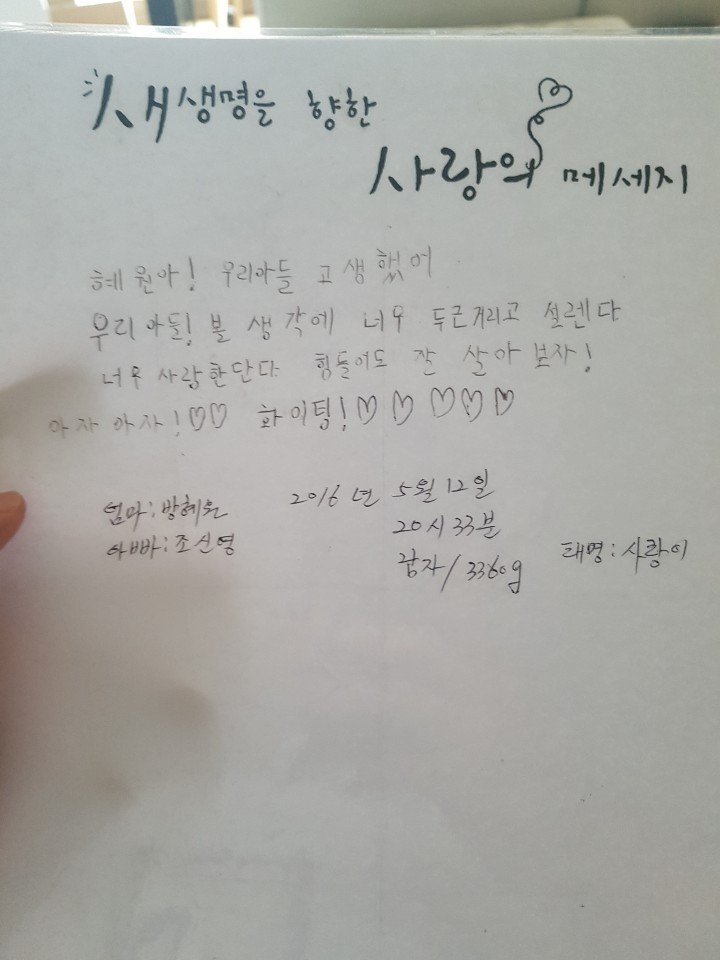 새생명을 향한
사랑의 메세지
혜원아! 우리아들 고생했어
우리아들! 볼 생각에 너무 두근거리고 설렌다
너무 사랑한단다 힘들어도 잘 살아보자!
아자 아자!♡♡ 화이팅!♡♡ ♡♡♡
엄마:방혜원 2016년 5월 12일
아빠:조신영 20시 33분
남자/3360g 태명:사랑이